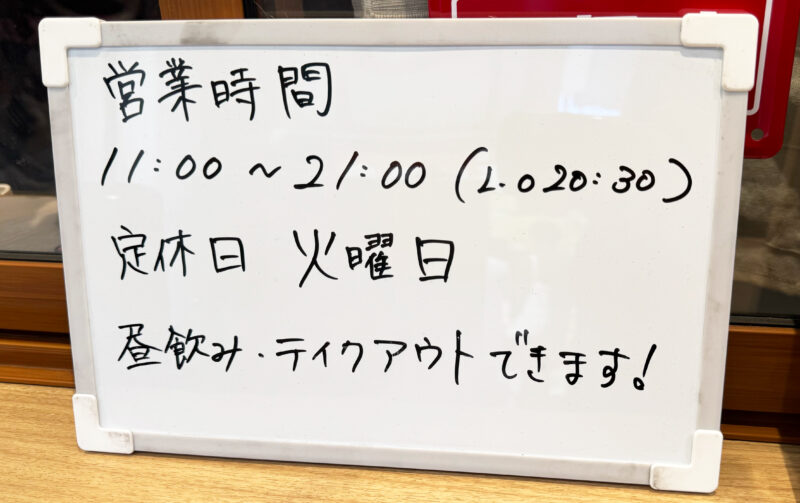 営業時間
11:00 ~ 21:00 (L.O 20:30)
定休日 火曜日
昼飲み・テイクアウトできます!